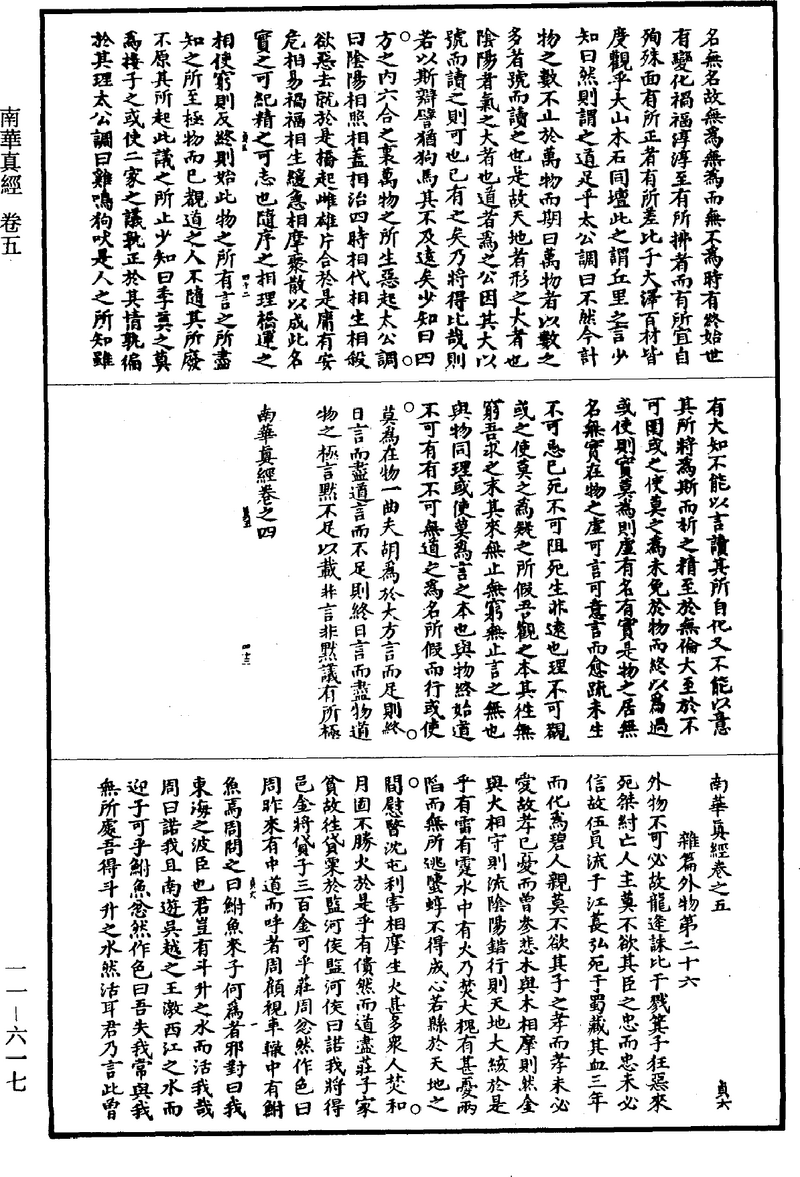 南華真經 卷五
名無名故無為無為而無不為時有終始世
有變化禍福淳淳至有所拂者而有所宜自
殉殊面有所正者有所差比于大澤百材皆
度觀乎大山木石同壇此之謂丘里之言少
知曰然則謂之道足乎太公調曰不然今計
物之數不止於萬物而期曰萬物者以數之
多者號而讀之也是故天地者形之大者也
陰陽者氣之大者也道者為之公因其大以
號而讀之則可也已有之矣乃將得比哉則
若以斯辯譬猶狗馬其不及遠矣少知曰四
方之內六合之裏萬物之所生惡起太公調
曰陰陽相照相蓋相治四時相代相生相殺
欲惡去就於是橋起雌雄片合於是庸有安
危相易禍福相生緩急相摩聚散以成此名
實之可紀精之可志也隨序之相理橋運之
相使窮則反終則始此物之所有言之所盡
知之所至極物而已觀道之人不隨其所廢
不原其所起此議之所止少知曰季真之莫
為接子之或使二家之議孰正於其情孰徧
於其理太公調曰雞鳴狗吠是人之所知雖
四十二
有大知不能以言讀其所自化又不能以意
其所將為斯而析之精至於無倫大至於不
可圍或之使莫之為未免於物而終以為過
或使則實莫為則虛有名有實是物之居無
名無實在物之虛可言可意言而愈疏未生
不可忌已死不可阻死生非遠也理不可觀
或之使莫之為疑之所假吾觀之本其往無
窮吾求之末其來無止無窮無止言之無也
與物同理或使莫為言之本也與物終始道
不可有有不可無道之為名所假而行或使
莫為在物一曲夫胡為於大方言而足則終
日言而盡道言而不足則終日言而盡物道
物之極言默不足以載非言非默議有所極
南華真經卷之四
四十三
南華真經卷之五
貞六
雜篇外物第二十六
外物不可必故龍逢誅比干戮箕子狂惡來
死桀紂亡人主莫不欲其臣之忠而忠未必
信故伍員流于江萇弘死于蜀藏其血三年
而化為碧人親莫不欲其子之孝而孝未必
愛故孝已憂而曾參悲木與木相摩則然金
與火相守則流陰陽錯行則天地大絯於是
乎有雷有霆水中有火乃焚大槐有甚憂兩
陷而無所逃螴蜳不得成心若縣於天地之
間慰暋沈屯利害相摩生火甚多衆人焚和
月固不勝火於是乎有僓然而道盡莊子家
貧故往貸粟於監河侯監河侯曰諾我將得
邑金將貸子三百金可乎莊周忿然作色曰
周昨來有中道而呼者周顧視車轍中有鮒
貞六
一
魚焉周問之曰鮒魚來子何為者邪對曰我
東海之波臣也君豈有斗升之水而活我哉
周曰諾我且南遊吳越之王激西江之水而
迎子可乎鮒魚忿然作色曰吾失我常與我
無所處吾得斗升之水然活耳君乃言此曾
一一－六一七